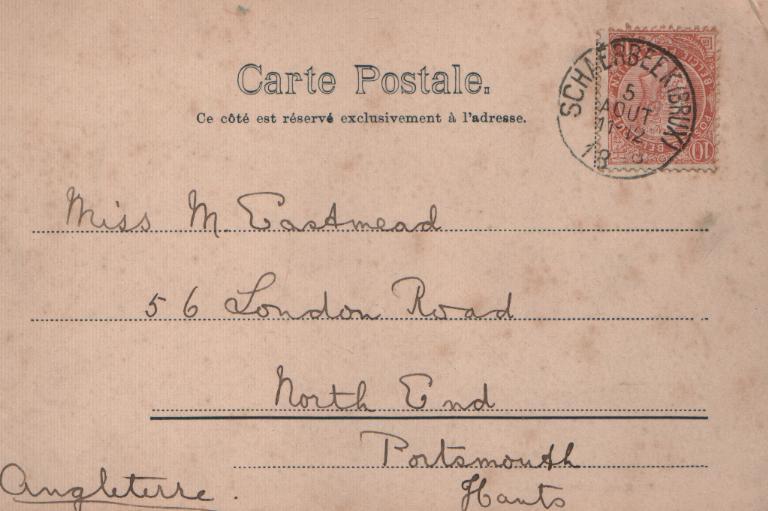 Carte Postale.
Ce côté est réservé exclusivement à l'adresse.
SCHAERBEEK (BRUX)
5
AOUT
11-12
10
Miss M. Eastmead
56 London Road
North End
Portsmouth
Hants
Angleterre.